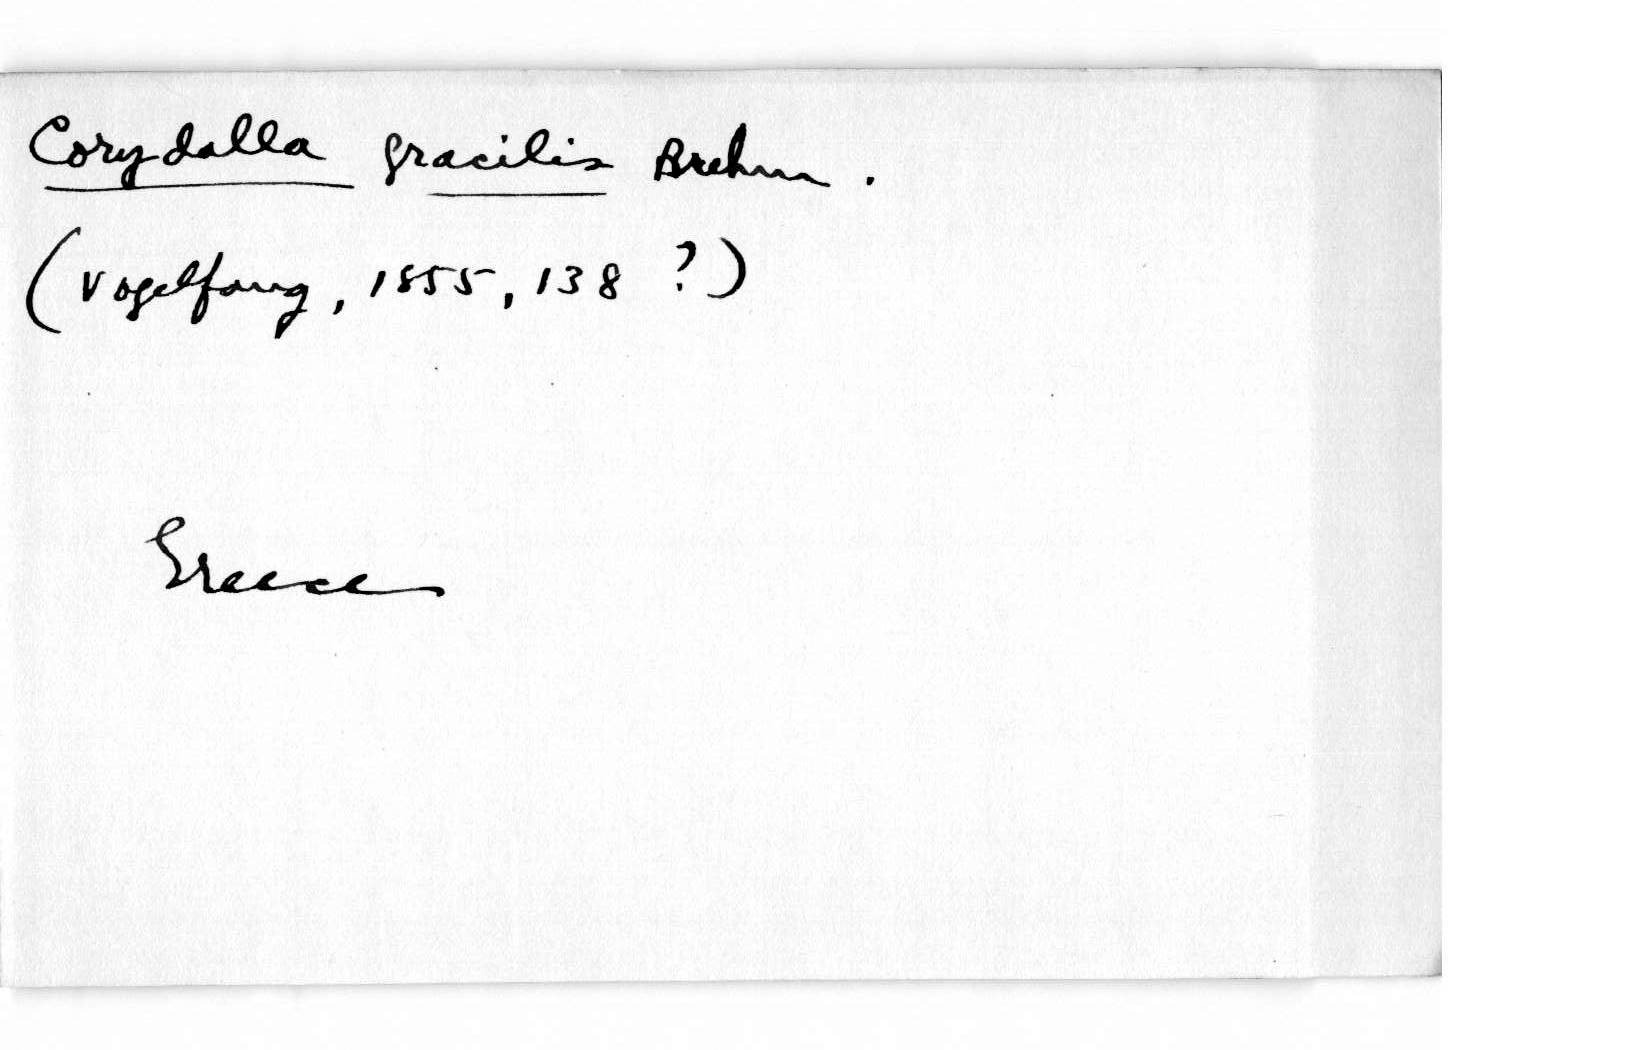 Corydalla gracilis Brehm.
(Vogelfang, 1855, 138 ?)
Greece